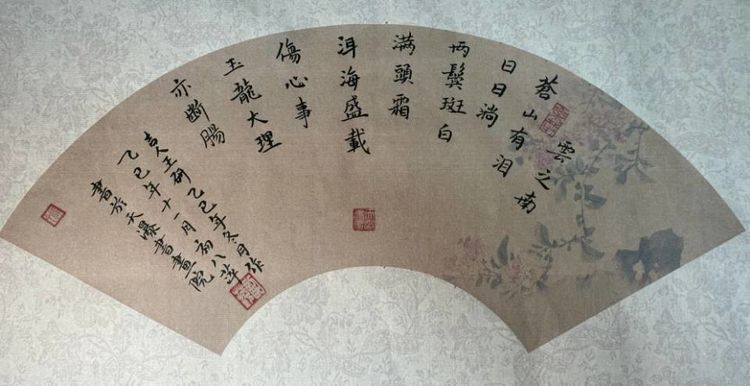 雲之南
蒼山有泪
日日淌
两鬓斑白
满頭霜
洱海盛載
傷心事
玉龍大理
亦斷腸
吉人王研乙巳年冬月作
乙巳年十一月初八萍
書於天瀑書畫院